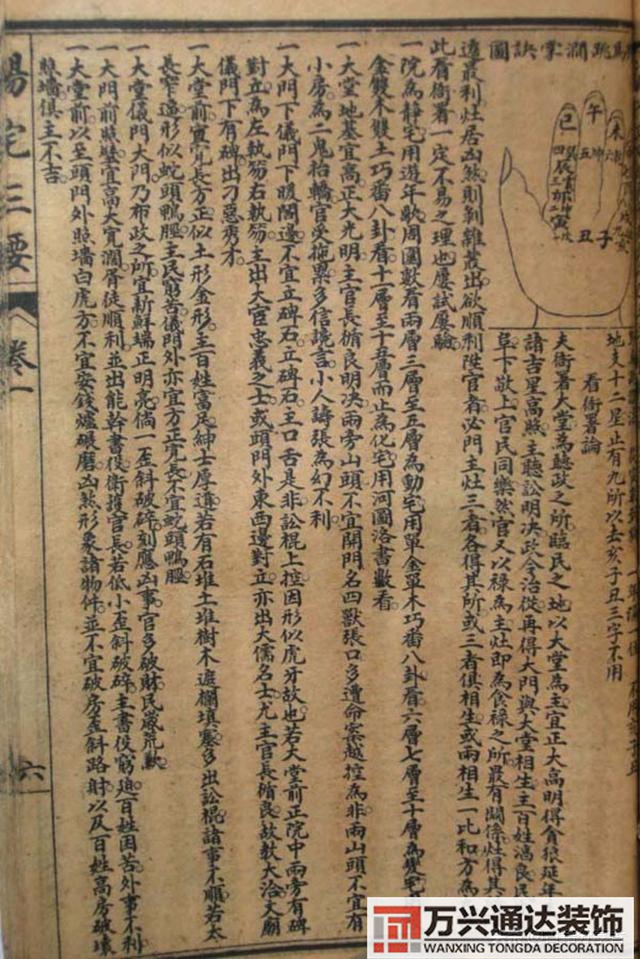 馬跳澗掌訣圖
午
未
巳
四
五
坤
六
辰
三
卯
二
寅
丑
子
地支十二星止有九所以去亥子丑三字不用
看衙署論
夫衙署大堂為聽政之所臨民之地以大堂為主宜正大高明得貪狼延年
諸吉星高照主聽訟明決政令治從再得大門與大堂相生主百姓漓良民
阜下敬上官民同樂然官又以祿為主灶即為食祿之所最有關係灶得其
遺叢利灶居凶煞則剝雜叢出欲順利陞官者必門主灶三者各得其所或三者俱相生或兩相生一比和方為
此看衙署一定不易之理也屢試屢驗
一院為靜宅用遊年歌周圍數看兩層三層至五層為動宅用單金單木巧番八卦看六層七層至十層為變宅用
金雙木雙土巧番八卦看十一層至十五層而止為化宅用河圖洛書數看
一大堂地基宜高正大光明主官長循良明決兩旁山頭不宜開門名四獸張口多遭命案越控為非兩山頭不宜有
小房為二鬼抬轎官受拖累多信讒言小人譸張為幻不利
一大門下儀門下暖閣邊不宜立碑石立碑石主口舌是非訟棍上控因形似虎牙故也若大堂前正院中兩旁有碑
對立為左執笏右執笏主出大官忠義之士或頭門外東西邊對立亦出大儒名士尤主官長循良故教大洽文廟
儀門下有碑出刁惡秀才
一大堂前寬長方正似土形金形主百姓富足紳士厚道若有石堆土堆樹木遮攔填塞多出訟棍諸事不順若太
長窄邊形似蛇頭鴨脰主民窮苦儀門外亦宜方正寬長不宜蛇頭鴨脰
一大堂儀門大門乃布政之所宜新鮮端正明亮倘一歪斜破碎刻應凶事官多破財民歲荒歉
一大門前照墻宜高大寬濶胥徒順利並出能幹書役衛護官長若低小歪斜破碎主書役窮迫百姓困苦外事不利
一大堂前以至頭門外照墻白虎方不宜安錢爐碾磨凶煞形象諸物件並不宜破房歪斜路射以及百姓高房破壞
照墻俱主不吉
陽宅三要
卷一
六
万兴通达装饰
WANXING TONGDA DECORATION